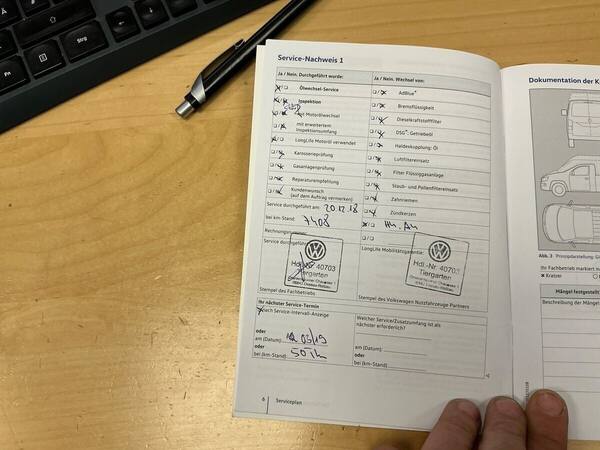 Ä
Fn
Strg
Service-Nachweis 1
Ja / Nein. Durchgeführt wurde:
Ölwechsel-Service
Inspektion
mit Motorölwechsel
mit erweitertem
Inspektionsumfang
LongLife Motoröl verwendet
Karosserieprüfung
Gasanlagenprüfung
Reparaturempfehlung
Kundenwunsch
(auf dem Auftrag vermerken)
Service durchgeführt am: 20.12.18
bei km-Stand: 7408
Rechnungsnummer:
Service durchgeführt
Hdl.-Nr 40703
Tiergarten
Stempel des Fachbetriebs
Ja / Nein. Wechsel von:
AdBlue®
Bremsflüssigkeit
Dieselkraftstofffilter
DSG®: Getriebeöl
Haldexkupplung: Öl
Luftfiltereinsatz
Filter Flüssiggasanlage
Staub- und Pollenfiltereinsatz
Zahnriemen
Zündkerzen
LongLife Mobilitätsgarantie:
Hdl.-Nr 40703
Tiergarten
Stempel des Volkswagen Nutzfahrzeuge Partners
Ihr nächster Service-Termin
nach Service-Intervall-Anzeige
oder
am (Datum): 05/19
oder
bei (km-Stand):
Welcher Service/Zusatzumfang ist als
nächster erforderlich?
am (Datum):
oder
bei (km-Stand):
6 Serviceplan
Dokumentation der K
Abb. 3 Prinzipdarstellung: G
Ihr Fachbetrieb markiert m
Kratzer
Mängel festgestellt
Beschreibung der Mängel